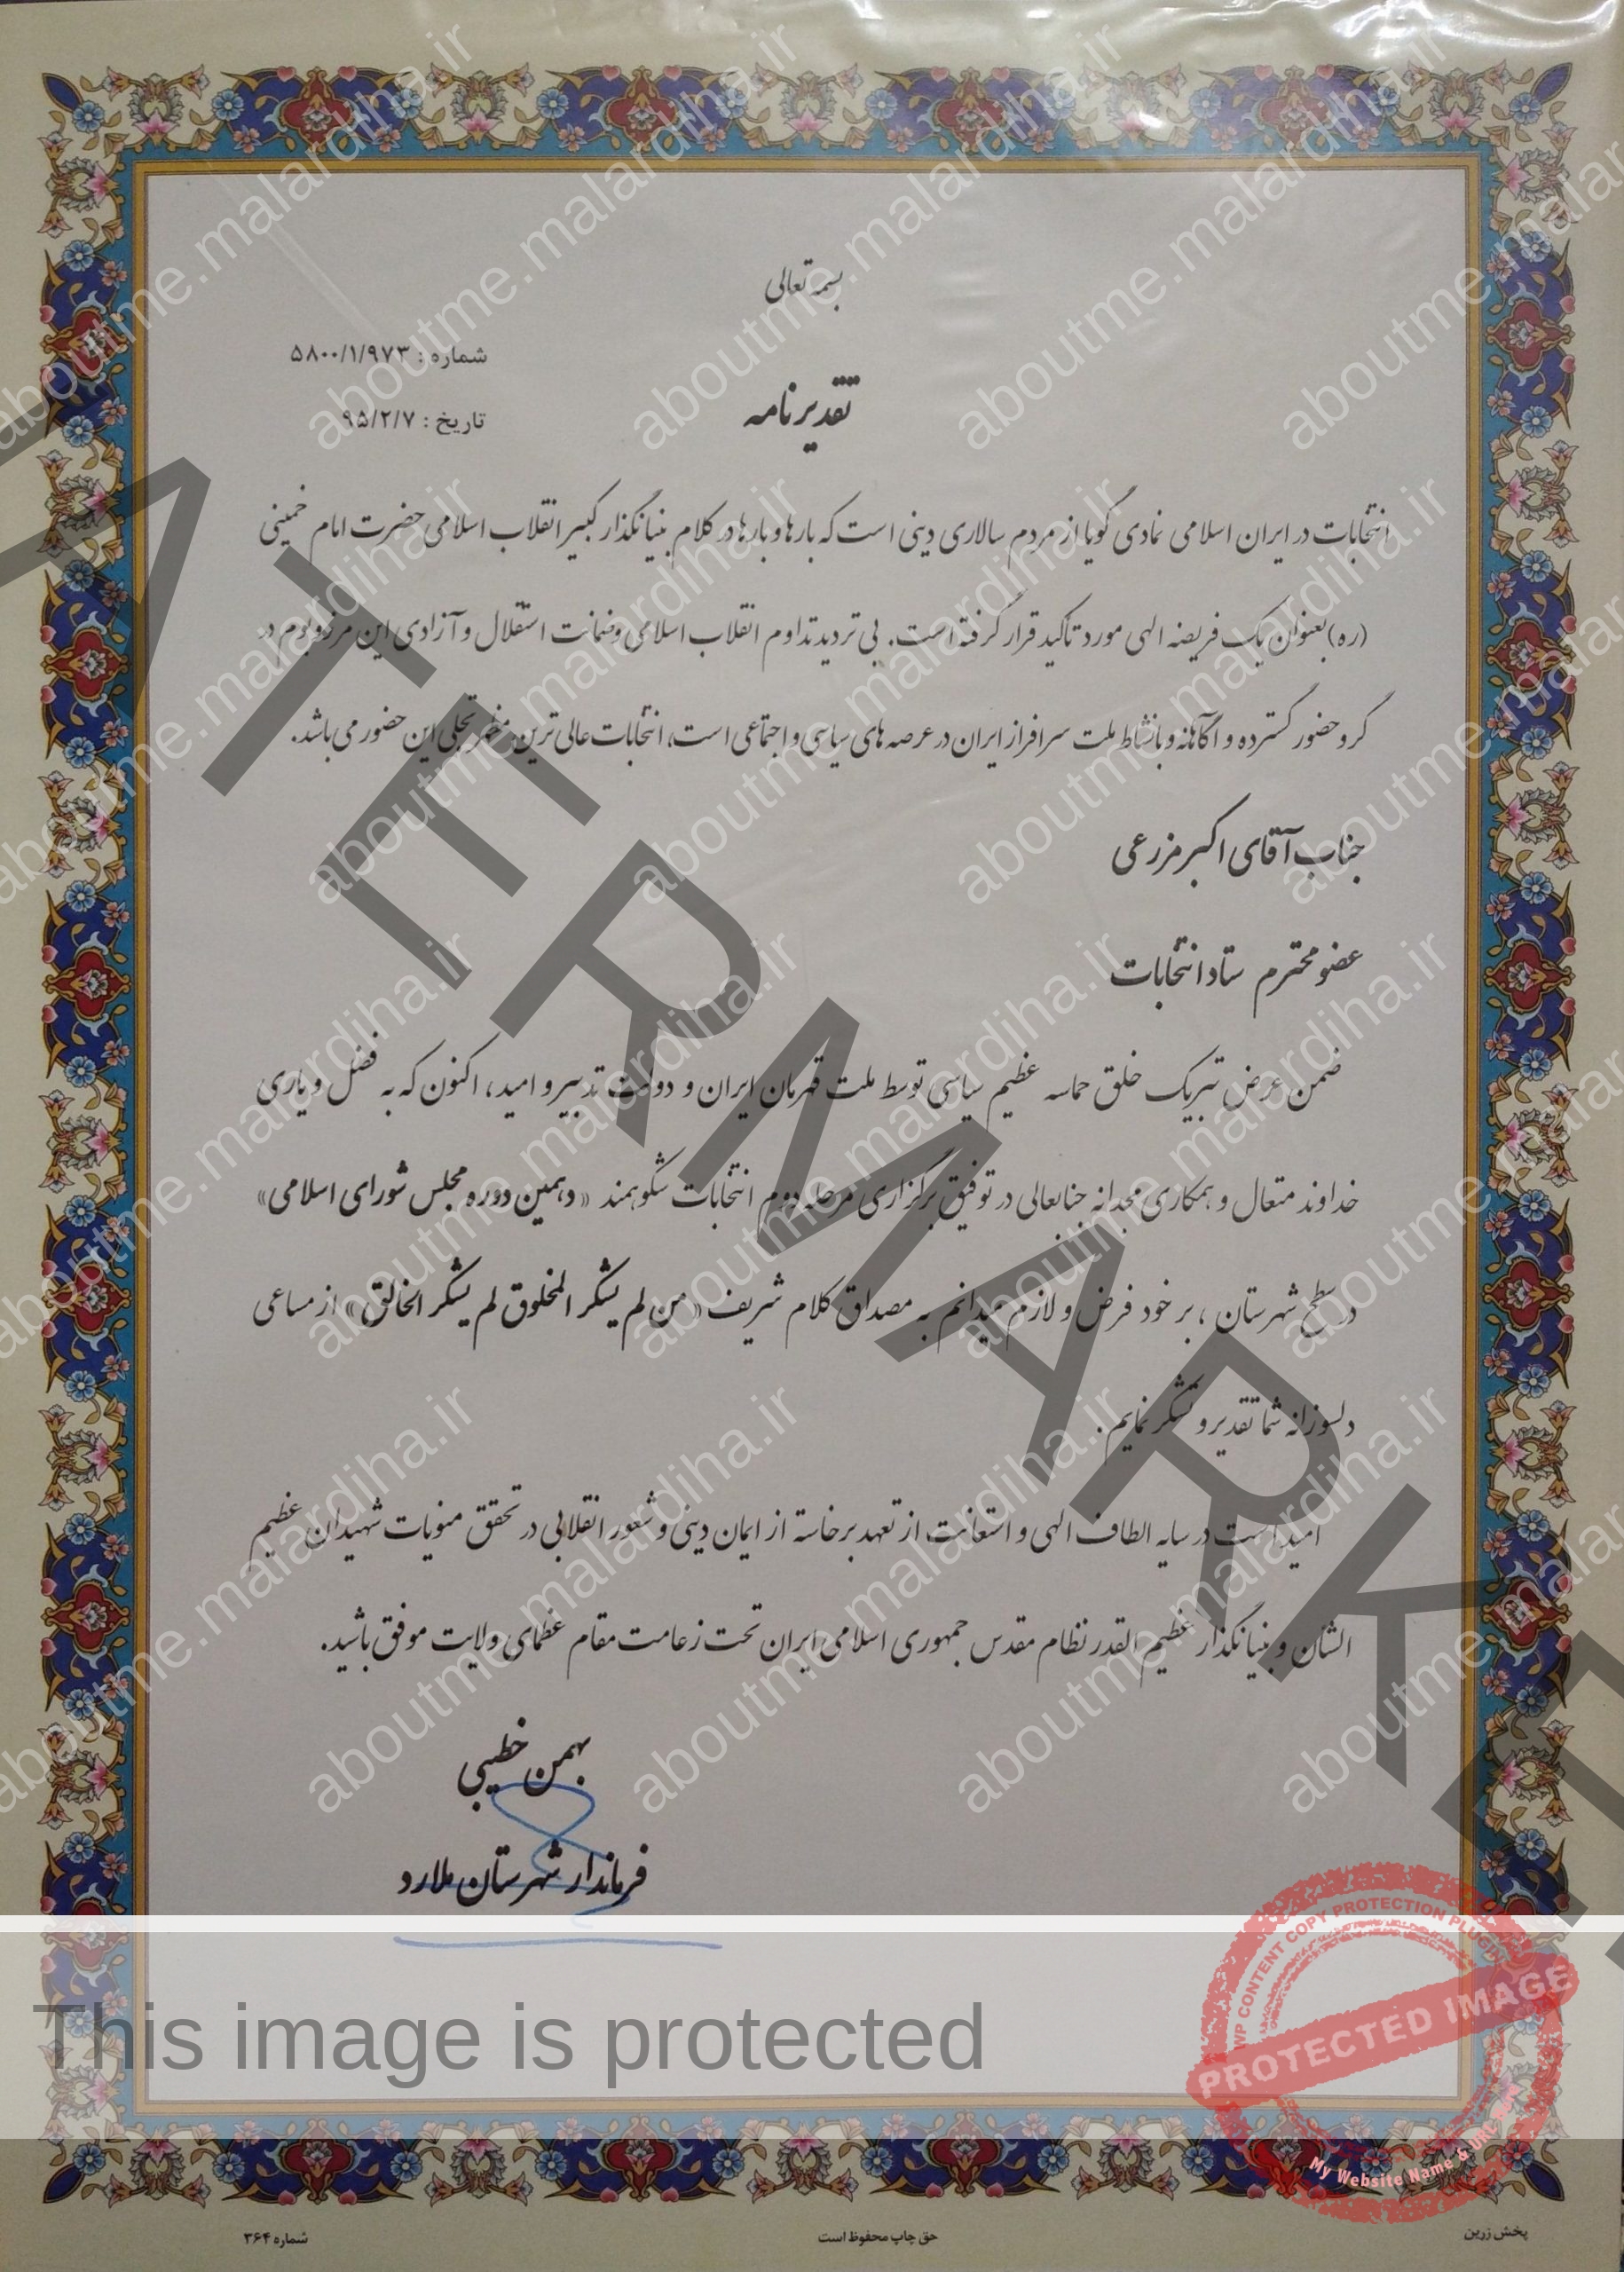 بسمه تعالی
شماره : ۵۸۰۰/۱/۹۷۳
تقدیرنامه
تاریخ : ۹۵/۲/۷
انتخابات در ایران اسلامی نمادی گویا از مردم سالاری دینی است که بارها و بارها در کلام بنیانگذار کبیر انقلاب اسلامی حضرت امام خمینی
(ره) بعنوان یک فریضه الهی مورد تاکید قرار گرفته است. بی تردید تداوم انقلاب اسلامی و ضمانت استقلال و آزادی این مرز و بوم در
گرو حضور گسترده و آگاهانه و بانشاط ملت سرافراز ایران در عرصه های سیاسی و اجتماعی است، انتخابات عالی ترین مظهر تجلی این حضور می باشد.
جناب آقای اکبر مزرعی
عضو محترم ستاد انتخابات
ضمن عرض تبریک خلق حماسه عظیم سیاسی توسط ملت قهرمان ایران و دولت تدبیر و امید، اکنون که به فضل و یاری
خداوند متعال و همکاری مجدانه جنابعالی در توفیق برگزاری مرحله دوم انتخابات شکوهمند «دهمین دوره مجلس شورای اسلامی»
در سطح شهرستان ، بر خود فرض و لازم میدانم به مصداق کلام شریف «من لم یشکر المخلوق لم یشکر الخالق» از مساعی
دلسوزانه شما تقدیر و تشکر نمایم.
امید است در سایه الطاف الهی و استعانت از تعهد برخاسته از ایمان دینی و شعور انقلابی در تحقق منویات شهیدان عظیم
الشان و بنیانگذار عظیم القدر نظام مقدس جمهوری اسلامی ایران تحت زعامت مقام عظمای ولایت موفق باشید.
بهمن خطیبی
فرماندار شهرستان ملارد
This image is protected
WP CONTENT COPY PROTECTION PLUGIN
PROTECTED IMAGE
My Website Name & URL
پخش زرین
حق چاپ محفوظ است
شماره ۳۶۴
WATERMARKED
aboutme.malardiha.ir